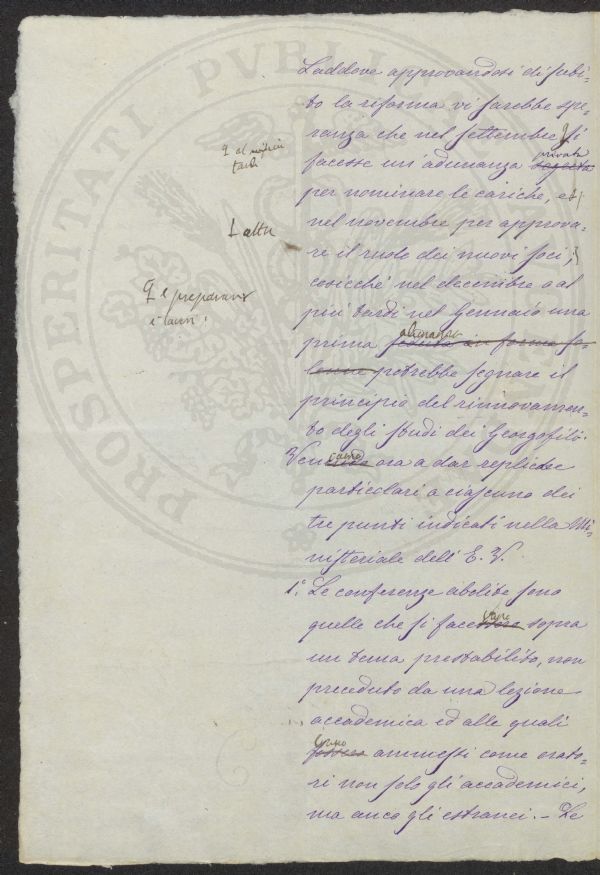 PROSPERITATI PVBLICAE
Laddove approvandosi di subi-
to la riforma vi sarebbe spe-
ranza che nel Settembre si
facesse un'adunanza privata
per nominare le cariche, e
nel novembre per approva-
re il ruolo dei nuovi soci,
cosicché nel decembre o al
più tardi nel Gennaio una
prima adunanza seduta in forma so-
lenne potrebbe segnare il
principio del rinnovamen-
to degli studi dei Georgofili.
Vengo ora a dar repliche
particolari a ciascuno dei
tre punti indicati nella Mi-
nisteriale dell'E. V.
1.° Le conferenze abolite sono
quelle che si facevano sopra
un tema prestabilito, non
preceduto da una lezione
accademica ed alle quali
erano fossero ammessi come orato-
ri non solo gli accademici,
ma anco gli estranei. - Le